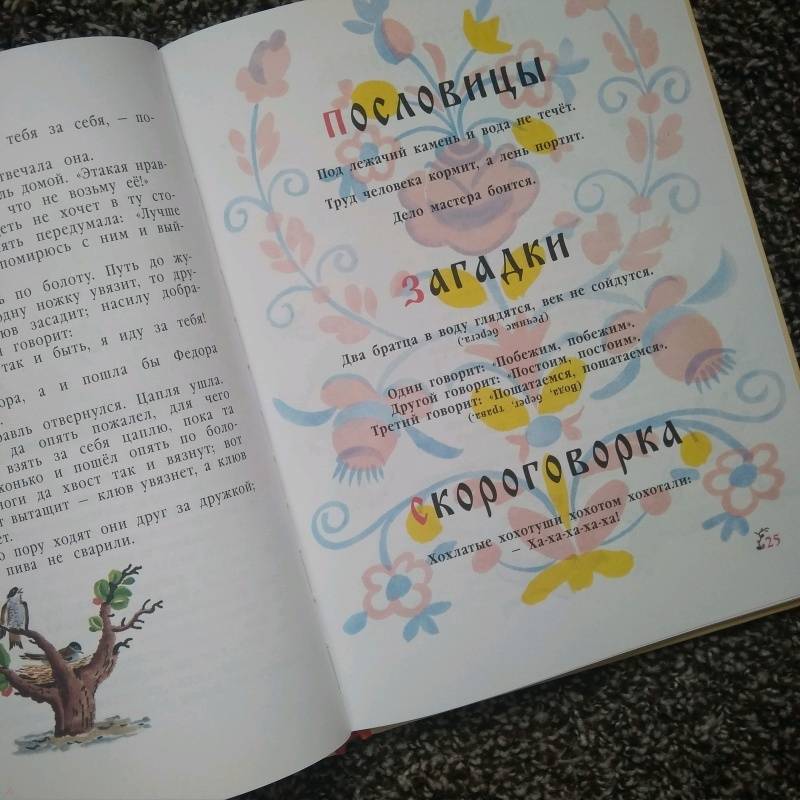 тебя за себя, — по-
твечала она.
ль домой. «Этакая нрав-
что не возьму её!»
деть не хочет в ту сто-
ять передумала: «Лучше
помирюсь с ним и вый-
ь по болоту. Путь до жу-
одну ножку увязит, то дру-
юв засадит; насилу добра-
и говорит:
так и быть, я иду за тебя!
ора, а и пошла бы Федора
равль отвернулся. Цапля ушла.
да опять пожалел, для чего
взять за себя цаплю, пока та
хонько и пошёл опять по боло-
ноги да хвост так и вязнут; вот
т вытащит — клюв увязнет, а клюв
ет.
ю пору ходят они друг за дружкой;
пива не сварили.
Пословицы
Под лежачий камень и вода не течёт.
Труд человека кормит, а лень портит.
Дело мастера боится.
Загадки
Два братца в воду глядятся, век не сойдутся.
(Речные берега.)
Один говорит: «Побежим, побежим».
Другой говорит: «Постоим, постоим».
Третий говорит: «Пошатаемся, пошатаемся».
(Вода, берег, трава.)
Скороговорка
Хохлатые хохотуши хохотом хохотали:
— Ха-ха-ха-ха-ха!
25